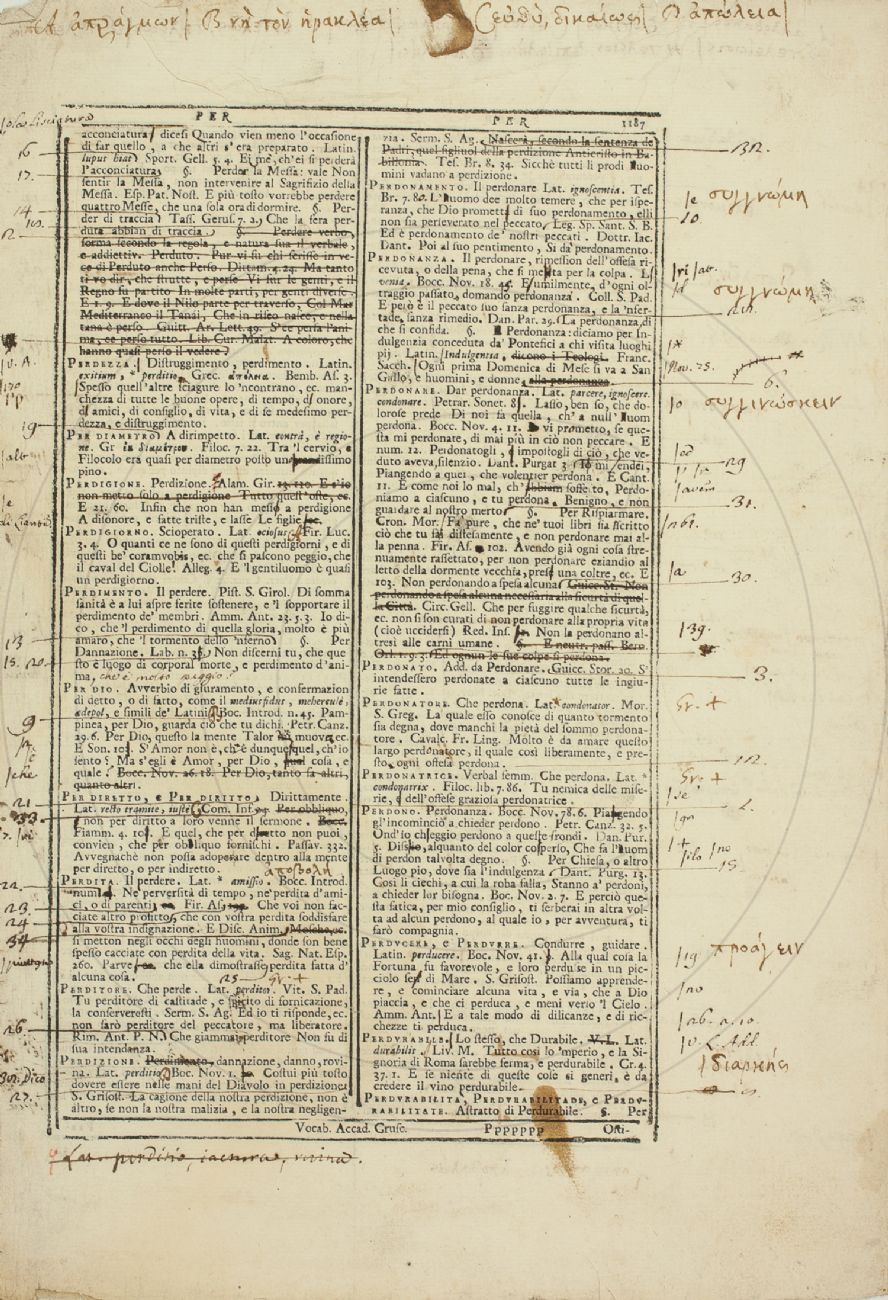 A ἀπράγμων | B νὴ τὸν ἡρακλέα | C εὐθὺ, δικαίως | D ἀπώλεια |
PER
PER
1187
acconciatura dicesi Quando vien meno l'occasione
di far quello, a che altri s'era preparato. Latin.
lupus hiat Sport. Gell. 5. 4. Eimè, ch'ei si perderà
l'acconciatura §. Perder la Messa: vale Non
sentir la Messa, non intervenire al Sagrifizio della
Messa. Esp. Pat. Nost. E più tosto vorrebbe perdere
quattro Messe, che una sola ora di dormire. §. Per-
der di traccia Tass. Gerus. 7. 2. Che la fera per-
duta abbian di traccia. §. Perdere verbo,
forma secondo la regola, e natura sua il verbale,
e addiettiv. Perduto. Pur vi fu chi scrisse in ve-
ce di Perduto anche Perso. Dittam. 4. 24. Ma tanto
ti vo dir, che strutte, e perse Vi fur le genti, e il
Regno fu partito In molte parti, per genti diverse.
E 1. 9. E dove il Nilo parte per traverso, Col Mar
Mediterraneo il Tanai, Che in riseo nasce, e nella
tana è perso. Guitt. Ar. Lett. 49. S'ee persa l'ani-
ma, ee perso tutto. Lib. Cur. Malat. A coloro, che
hanno quasi perso il vedere
PERDEZZA. Distruggimento, perdimento. Latin.
exitium, perditio Grec. Bemb. As. 3.
Spesso quell'altre sciagure lo'ncontrano, ec. man-
chezza di tutte le buone opere, di tempo, di onore,
di amici, di consiglio, di vita, e di se medesimo per-
dezza, e distruggimento.
PER DIAMETRO A dirimpetto. Lat. contrà, è regio-
ne. Gr Filoc. 7. 22. Tra 'l cervio, e
Filocolo era quasi per diametro posto un grandissimo
pino.
PERDIGIONE. Perdizione. Alam. Gir. 19. 110. E s'io
non metto solo a perdigione Tutto quest'oste, ec.
E 21. 60. Infin che non han messo a perdigione
A disonore, e fatte triste, e lasse Le figlie
PERDIGIORNO. Scioperato. Lat. otiosus Fir. Luc.
3. 4. O quanti ce ne sono di questi perdigiorni, e di
questi be' coramvobis, ec. che si pascono peggio, che
il caval del Ciolle. Alleg. 4. E 'l gentiluomo è quasi
un perdigiorno.
PERDIMENTO. Il perdere. Pist. S. Girol. Di somma
sanità è a lui aspre ferite sostenere, e 'l sopportare il
perdimento de' membri. Amm. Ant. 23. 5. 3. Io di-
co, che 'l perdimento di quella gloria, molto è più
amaro, che 'l tormento dello 'nferno §. Per
Dannazione. Lab. n. 35. Non discerni tu, che que
sto è luogo di corporal morte, e perdimento d'ani-
ma, che è molto peggio?
PER DIO. Avverbio di giuramento, e confermazion
di detto, o di fatto, come il mediusfidius, mehercule,
ædepol, e simili de' Latini Boc. Introd. n. 45. Pam-
pinea, per Dio, guarda ciò che tu dichi. Petr. Canz.
29. 6. Per Dio, questo la mente Talor vi muova, ec.
E Son. 103. S'Amor non è, ch'è dunque quel, ch'io
sento? Ma s'egli è Amor, per Dio, qual cosa, e
quale. Bocc. Nov. 26. 18. Per Dio, tanto fa altri,
quanto altri.
PER DIRETTO, e PER DIRITTO. Dirittamente.
Lat. recto tramite, iuste Com. Inf. Per obbliquo,
non per diritto a loro venne il sermone. Bocc.
Fiamm. 4. 103. E quel, che per diretto non puoi,
convien, che per obbliquo fornischi. Passav. 332.
Avvegnachè non possa adoperare dentro alla mente
per diretto, o per indiretto. ἀποβολὴ
PERDITA. Il perdere. Lat. amissio. Bocc. Introd.
num. Nè perversità di tempo, nè perdita d'ami-
ci, o di parenti Fir. As. Che voi non fac-
ciate altro profitto, che con vostra perdita soddisfare
alla vostra indignazione. E Disc. Anim. Mosche, ec.
si metton negli occhi degli huomini, donde son bene
spesso cacciate con perdita della vita. Sag. Nat. Esp.
260. Parve che ella dimostrasse perdita fatta d'
alcuna cosa. 25 Gr. +
PERDITORE. Che perde. Lat. perditor. Vit. S. Pad.
Tu perditore di castitade, e spirito di fornicazione,
la conserverosti. Serm. S. Ag. Ed io ti risponde, ec.
non sarò perditore del peccatore, ma liberatore.
Rim. Ant. P. N. Che giammai perditore Non fu di
sua intendanza.
PERDIZIONE. Perdimento, dannazione, danno, rovi-
na. Lat. perditio Boc. Nov. 1. Costui più tosto
dovere essere nelle mani del Diavolo in perdizione
S. Grisost. La cagione della nostra perdizione, non è
altro, se non la nostra malizia, e la nostra negligen-
zia. Serm. S. Ag. Nascerà, secondo la sentenza de
Padri, quel figliuol della perdizione Anticristo in Ba-
billonia. Tes. Br. 8. 34. Sicchè tutti li prodi huo-
mini vadano a perdizione.
PERDONAMENTO. Il perdonare Lat. ignoscentia. Tes.
Br. 7. 82. L'huomo dee molto temere, che per ispe-
ranza, che Dio prometta di suo perdonamento, elli
non sia perseverato nel peccato. Leg. Sp. Sant. S. B.
Ed è perdonamento de' nostri peccati. Dottr. Iac.
Dant. Poi al suo pentimento, Si da perdonamento.
PERDONANZA. Il perdonare, rimession dell'offesa ri-
cevuta, o della pena, che si merita per la colpa. L.
venia. Bocc. Nov. 18. 45. E umilmente, d'ogni ol-
traggio passato, domando perdonanza. Coll. S. Pad.
E però è il peccato suo senza perdonanza, e la 'nfer-
tade, sanza rimedio. Dan. Par. 29. La perdonanza, di
che si confida. §. Perdonanza: diciamo per In-
dulgenzia conceduta da' Pontefici a chi visita luoghi
pij. Latin. Indulgentia, dicono i Teologi. Franc.
Sacch. Ogni prima Domenica di Mese si va a San
Gallo, e huomini, e donne alla perdonanza.
PERDONARE. Dar perdonanza. Lat. parcere, ignoscere
condonare. Petrar. Sonet. 83. Lasso, ben so, che do-
lorose prede Di noi fa quella, ch' a null'huom
perdona. Bocc. Nov. 4. 11. vi prometto, se que-
sta mi perdonate, di mai più in ciò non peccare. E
num. 12. Perdonatogli, e impostogli di ciò, che ve-
duto aveva, silenzio. Dant. Purgat 3. Io mi rendei,
Piangendo a quei, che volentier perdona. E Cant.
11. E come noi lo mal, ch' abbiam sofferto, Perdo-
niamo a ciascuno, e tu perdona Benigno, e non
guardare al nostro merto §. Per Risparmiare.
Cron. Mor. Fa pure, che ne' tuoi libri sia iscritto
ciò che tu fai distesamente, e non perdonare mai al-
la penna. Fir. As. 102. Avendo già ogni cosa stre-
nuamente rassettato, per non perdonare eziandio al
letto della dormente vecchia, presa una coltre, ec. E
103. Non perdonando a spesa alcuna Guicc. St. Non
perdonando a spesa alcuna necessaria alla sicurtà di quel-
la Città. Circ. Gell. Che per fuggire qualche sicurtà,
ec. non si son curati di non perdonare alla propria vita
(cioè uccidersi) Red. Ins. Non la perdonano al-
tresì alle carni umane. §. E neutr. pass. Bern.
Orl. 1. 9. 3. Ed ognun le sue colpe si perdona.
PERDONATO. Add. da Perdonare. Guicc. Stor. 20. S'
intendessero perdonate a ciascuno tutte le ingiu-
rie fatte.
PERDONATORE. Che perdona. Lat. condonator. Mor.
S. Greg. La quale esso conosce di quanto tormento
sia degna, dove manchi la pietà del sommo perdona-
tore. Cavalc. Fr. Ling. Molto è da amare questo
largo perdonatore, il quale così liberamente, e pre-
sto, ogni offesa perdona.
PERDONATRICE. Verbal femm. Che perdona. Lat. *
condonatrix. Filoc. lib. 7. 86. Tu nemica delle mise-
rie, e dell'offese graziosa perdonatrice.
PERDONO. Perdonanza. Bocc. Nov. 78. 6. Piangendo
gl'incominciò a chieder perdono. Petr. Canz. 32. 5.
Ond'io chieggio perdono a queste frondi. Dan. Pur.
5. Dissio, alquanto del color cosperso, Che fa l'huom
di perdon talvolta degno. §. Per Chiesa, o altro
Luogo pio, dove sia l'indulgenza Dant. Purg. 13.
Così li ciechi, a cui la roba falla, Stanno a' perdoni,
a chieder lor bisogna. Boc. Nov. 2. 7. E perciò que-
sta fatica, per mio consiglio, ti serberai in altra vol-
ta ad alcun perdono, al quale io, per avventura, ti
farò compagnia.
PERDUCERE, e PERDURRE. Condurre, guidare.
Latin. perducere. Boc. Nov. 41. Alla qual cosa la
Fortuna fu favorevole, e loro perduse in un pic-
ciolo seno di Mare. S. Grisost. Possiamo apprende-
re, e cominciare alcuna vita, e via, che a Dio
piaccia, e che ci perduca, e meni verso 'l Cielo.
Amm. Ant. E a tale modo di dilicanze, e di ric-
chezze ti perduca.
PERDURABILE. Lo stesso, che Durabile. V. L. Lat.
durabilis. Liv. M. Tutto così lo 'mperio, e la Si-
gnoria di Roma sarebbe ferma, e perdurabile. Cr. 4.
37. 1. E se niente di queste cose si generi, è da
credere il vino perdurabile.
PERDURABILITÀ, PERDURABILITADE, e PERDU-
RABILITATE. Astratto di Perdurabile. §. Per
Vocab. Accad. Cruse.
Ppppppp
Osti-
Lat. perditio, iactura, ruina.
16
17.
14
19
13
9
21
22.
23.
24
34
26
27.
132.
συγγνώμη
10.
συγγνώμη
Nov. 75.
6.
συγγινώσκειν
29
31.
30.
139.
3.
Gr. +
112.
Gr. +
2.
15
προάγειν
διαρκής